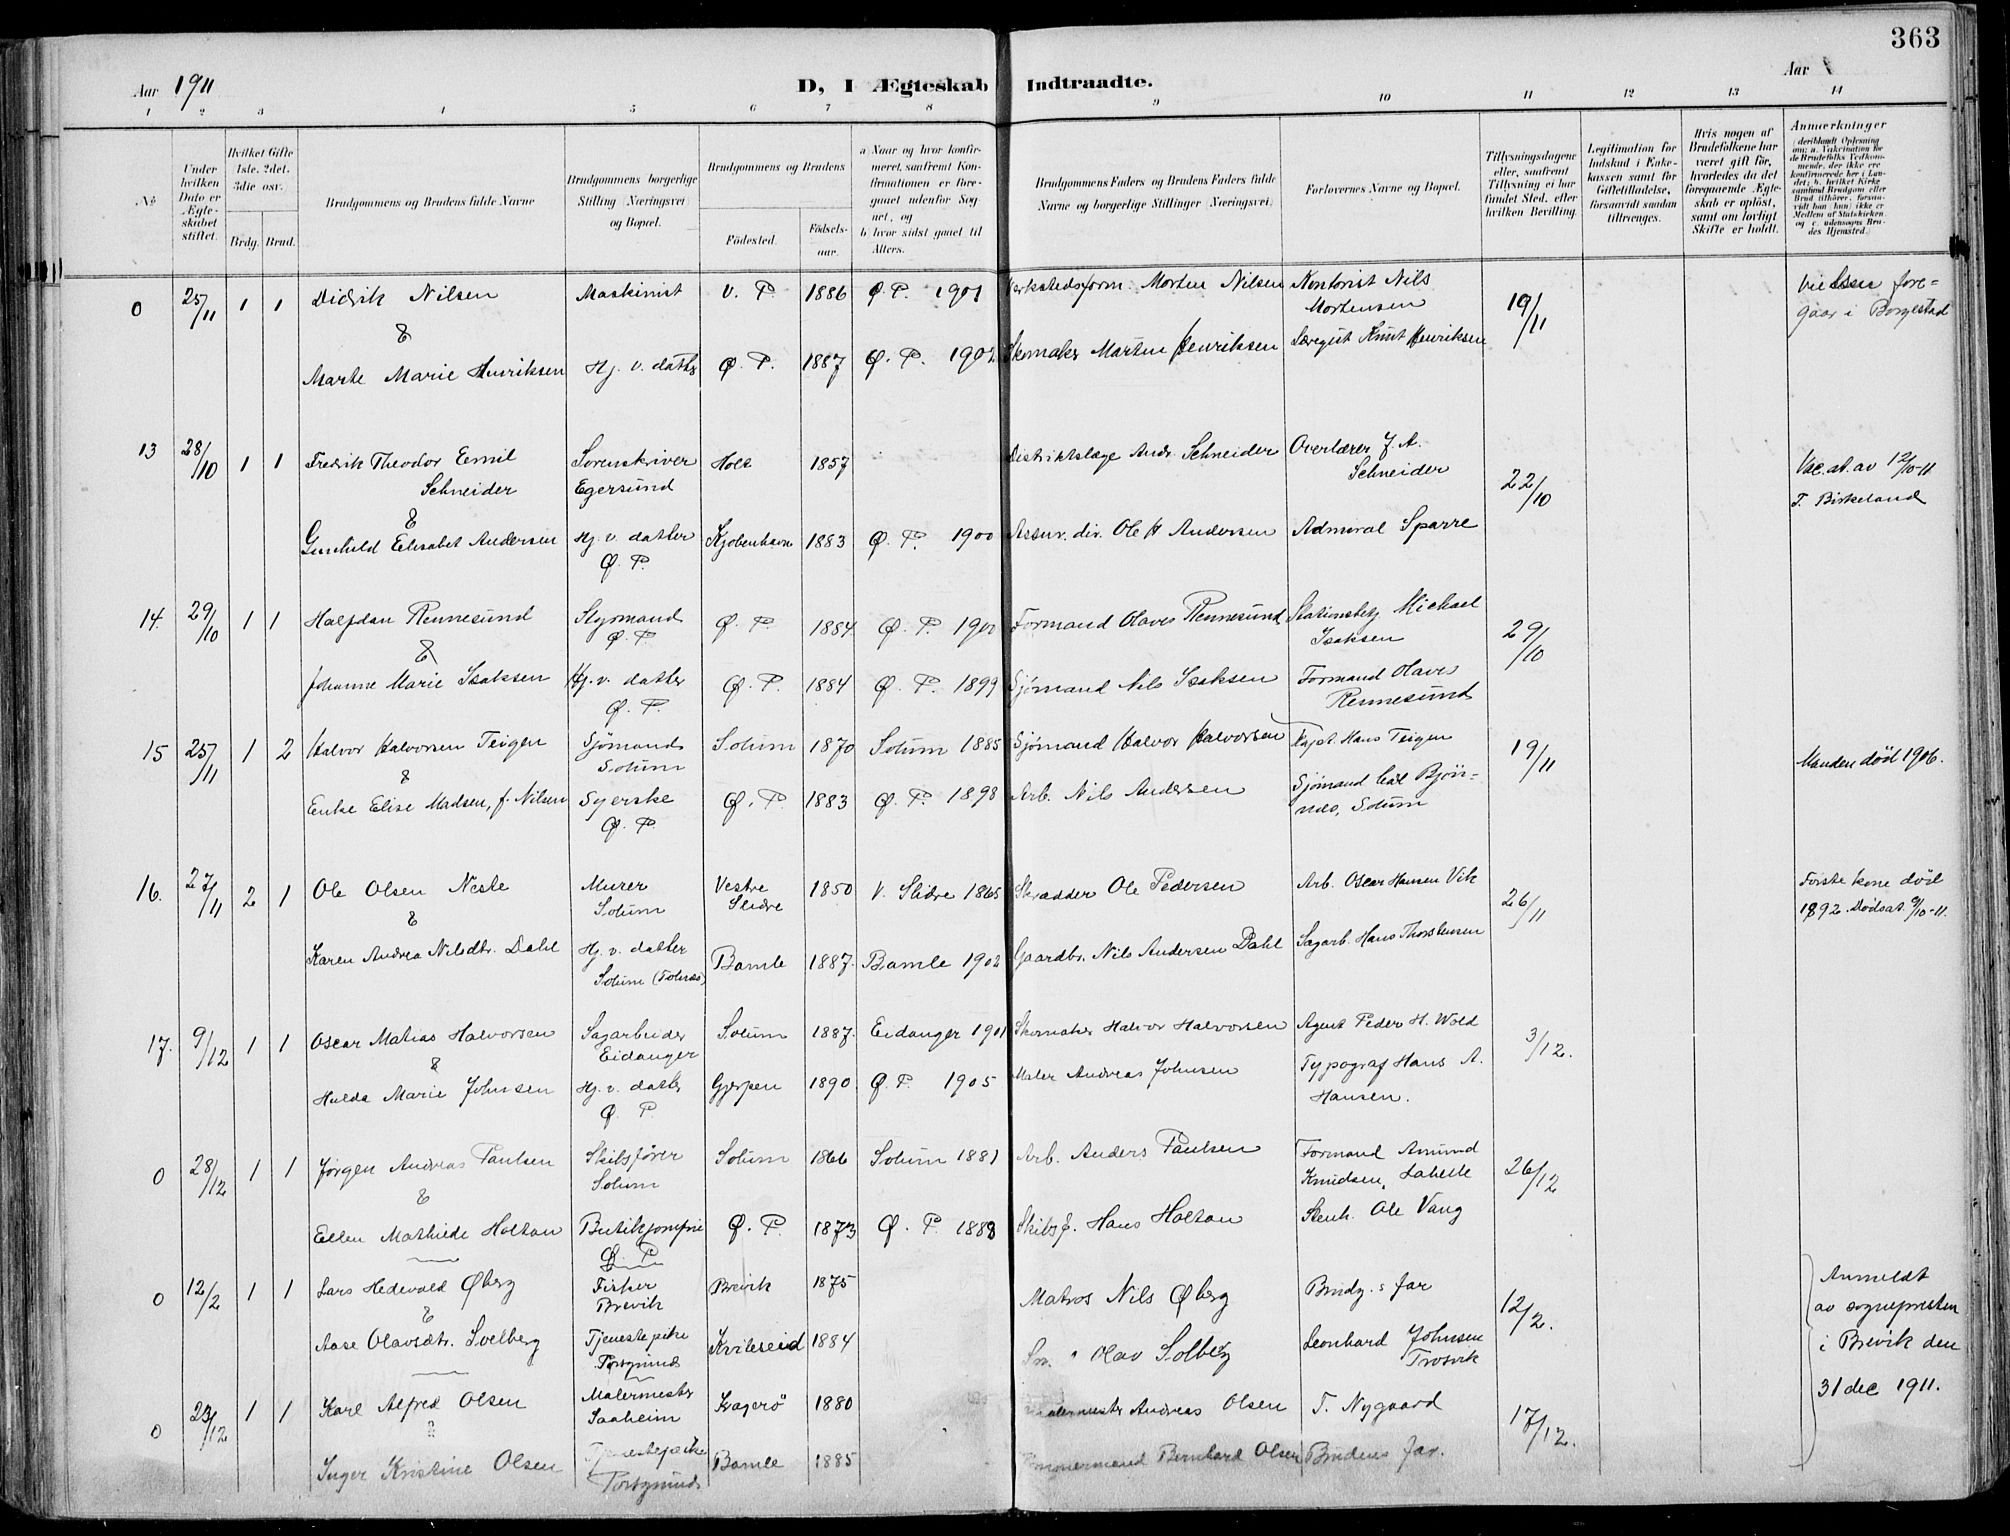 363
Aar 1911
D, I Ægteskab Indtraadte.
Aar
1 2 3 4 5 6 7 8 9 10 11 12 13 14
No
Under hvilken Dato er Ægteskabet stiftet.
Hvilket Gifte 1ste. 2det. 3die osv.
Brdg. Brud.
Brudgommens og Brudens fulde Navne
Brudgommens borgerlige Stilling (Næringsvei) og Bopæl.
Brudgommens og Brudens
Födested.
Födselsaar.
a Naar og hvor konfirmeret, saafremt Konfirmationen er foregaaet udenfor Sognet, og
b) hvor sidst gaaet til Alters.
Brudgommens Faders og Brudens Faders fulde Navne og borgerlige Stillinger (Næringsvei).
Forlovernes Navne og Bopæl.
Tillysningsdagene eller, saafremt Tillysning ei har fundet Sted, efter hvilken Bevilling.
Legitimation for Indskud i Enkekassen samt for Giftetilladelse, forsaavidt saadan tiltrænges.
Hvis nogen af Brudefolkene har været gift før, hvorledes da det foregaaende Ægteskab er oplöst, samt om lovligt Skifte er holdt.
Anmærkninger
0 25/11 1 1 Didrik Nilsen Maskinist V. P. 1886 Ø. P. 1901 Verkstedsform. Morten Nilsen Kontorist Nils Mortensen 19/11 Vielsen foregaar i Borgestad
&
Marte Marie Henriksen Hj. v. datter Ø. P. 1887 Ø. P. 1902 Skomaker Martin Henriksen Knut Henriksen
13 28/10 1 1 Fredrik Theodor Emil Schneider Sorenskriver Egersund Holt 1857 Distriktslæge Andr. Schneider Overlærer J. A. Schneider 22/10 Vac. at. av 12/10-11 T. Birkeland
&
Gunhild Elisabet Andersen Hj. v. datter Ø. P. Kjøbenhavn 1883 Ø. P. 1900 Assur. dir. Ole H. Andersen Admiral Sparre
14. 29/10 1 1 Halfdan Rennesund Styrmand Ø. P. Ø. P. 1884 Ø. P. 1900 Formand Olaves Rennesund Stationsbetj Michael Isaksen 29/10
&
Johanne Marie Isaksen Hj. v. datter Ø. P. Ø. P. 1884 Ø. P. 1899 Sjømand Nils Isaksen Formand Olave Rennesund
15 25/11 1 2 Halvor Halvorsen Teigen Sjömand Solum Solum 1870 Solum 1885 Sjømand Halvor Halvorsen Kapt. Hans Teigen 19/11 Manden död 1906.
&
Enke Elise Madsen, f. Nilsen Syerske Ø. P. Ø. P. 1883 Ø. P. 1898 Arb. Nils Andersen Sjømand Carl Bjönnes, Solum
16. 27/11 2 1 Ole Olsen Neste Murer Solum Vestre Slidre 1850 V. Slidre 1865 Skrædder Ole Pedersen Arb. Oscar Hansen Vik 26/11 Første kone död 1892. Dødsat. 9/10-11.
&
Karen Andrea Nilsdtr. Dahl Hj. v. datter Solum (Tolnes) Bamle 1887. Bamle 1902 Gaardbr. Nils Andersen Dahl Sagarb. Hans Thorstensen
17. 9/12 1 1 Oscar Matias Halvorsen Sagarbeider Eidanger Solum 1887. Eidanger 1901 Skomaker Halvor Halvorsen Agent Peder H. Wold 3/12.
&
Hulda Marie Johnsen Hj. v. datter Ø. P. Gjerpen 1890 Ø. P. 1905 Maler Andreas Johnsen Typograf Hans A. Hansen.
0 28/12 1 1 Jørgen Andreas Paulsen Skibsfører Solum Solum 1866 Solum 1881 Arb. Anders Paulsen Formand Amund Knudsen, 26/12
&
Ellen Mathilde Holtan Butikjomfru Ø. P. Ø. P. 1873 Ø. P. 1888 Skibsf. Hans Holtan Stenh. Ole Vang
0 12/2 1 1 Lars Hedevald Øberg Fisker Brevik Brevik 1875 Matros Nils Øberg Brudg.s far 12/2. Anmeldt av sognepresten i Brevik den 31 dec 1911.
&
Aase Olavsdtr. Solberg Tjenestepike Porsgrund Kviteseid 1884 Sm. Olav Solberg Leonhard Johnsen Trosvik
0 23/12 1 1 Karl Alfred Olsen Malermester Saaheim Kragerö 1880 Malermester Andreas Olsen T. Nygaard 17/12.
&
Inger Kristine Olsen Tjenestepike Porsgrund Bamle 1885 Tømmermand Bernhard Olsen Brudens far.